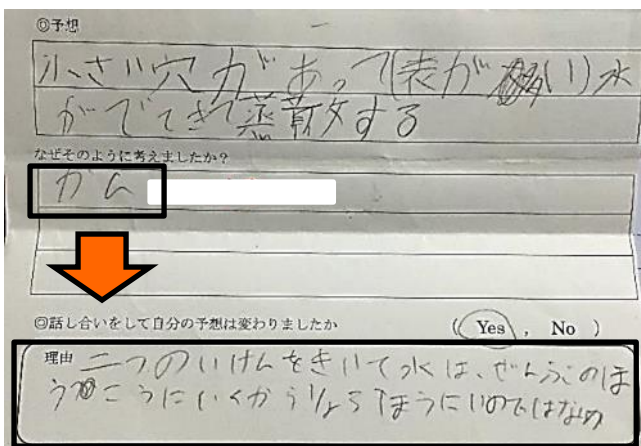 ◎予想
小さい穴があって(表が多い)水
がでてきて蒸散する
なぜそのように考えましたか？
かん
◎話し合いをして自分の予想は変わりましたか
( Yes , No )
理由 二つのいけんをきいて水は、ぜんぶのほ
うこうにいくからりょうほうに